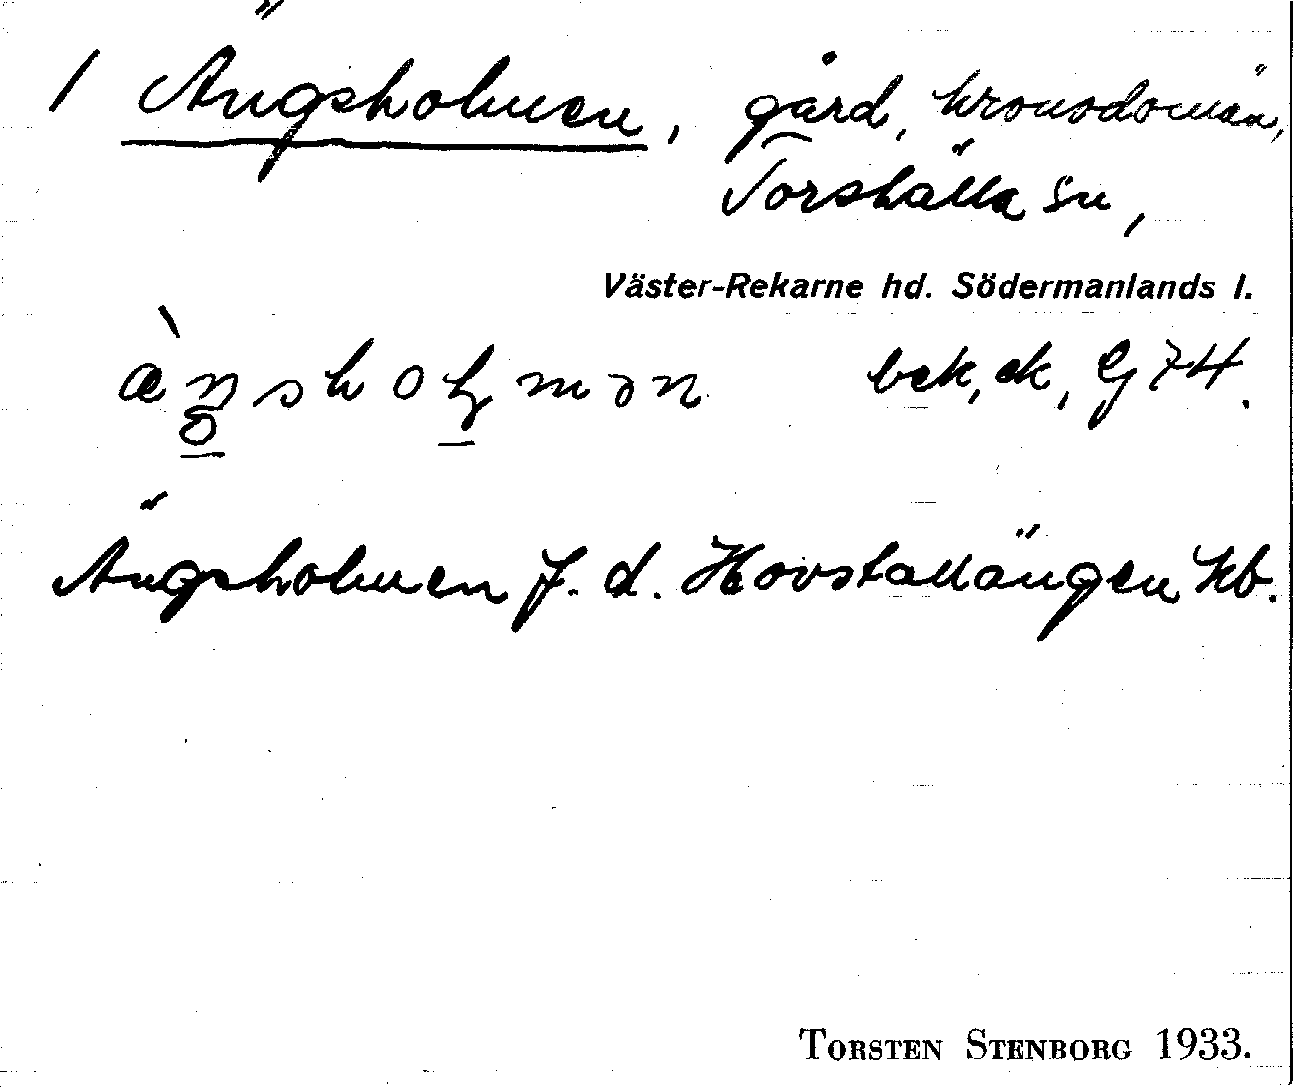 1 Ängsholmen, gård, kronodomän,
Torshälla sn,
Väster-Rekarne hd. Södermanlands l.
bek, ek, G 74.
Ängsholmen f. d. Hovstallängen kb.
TORSTEN STENBORG 1933.